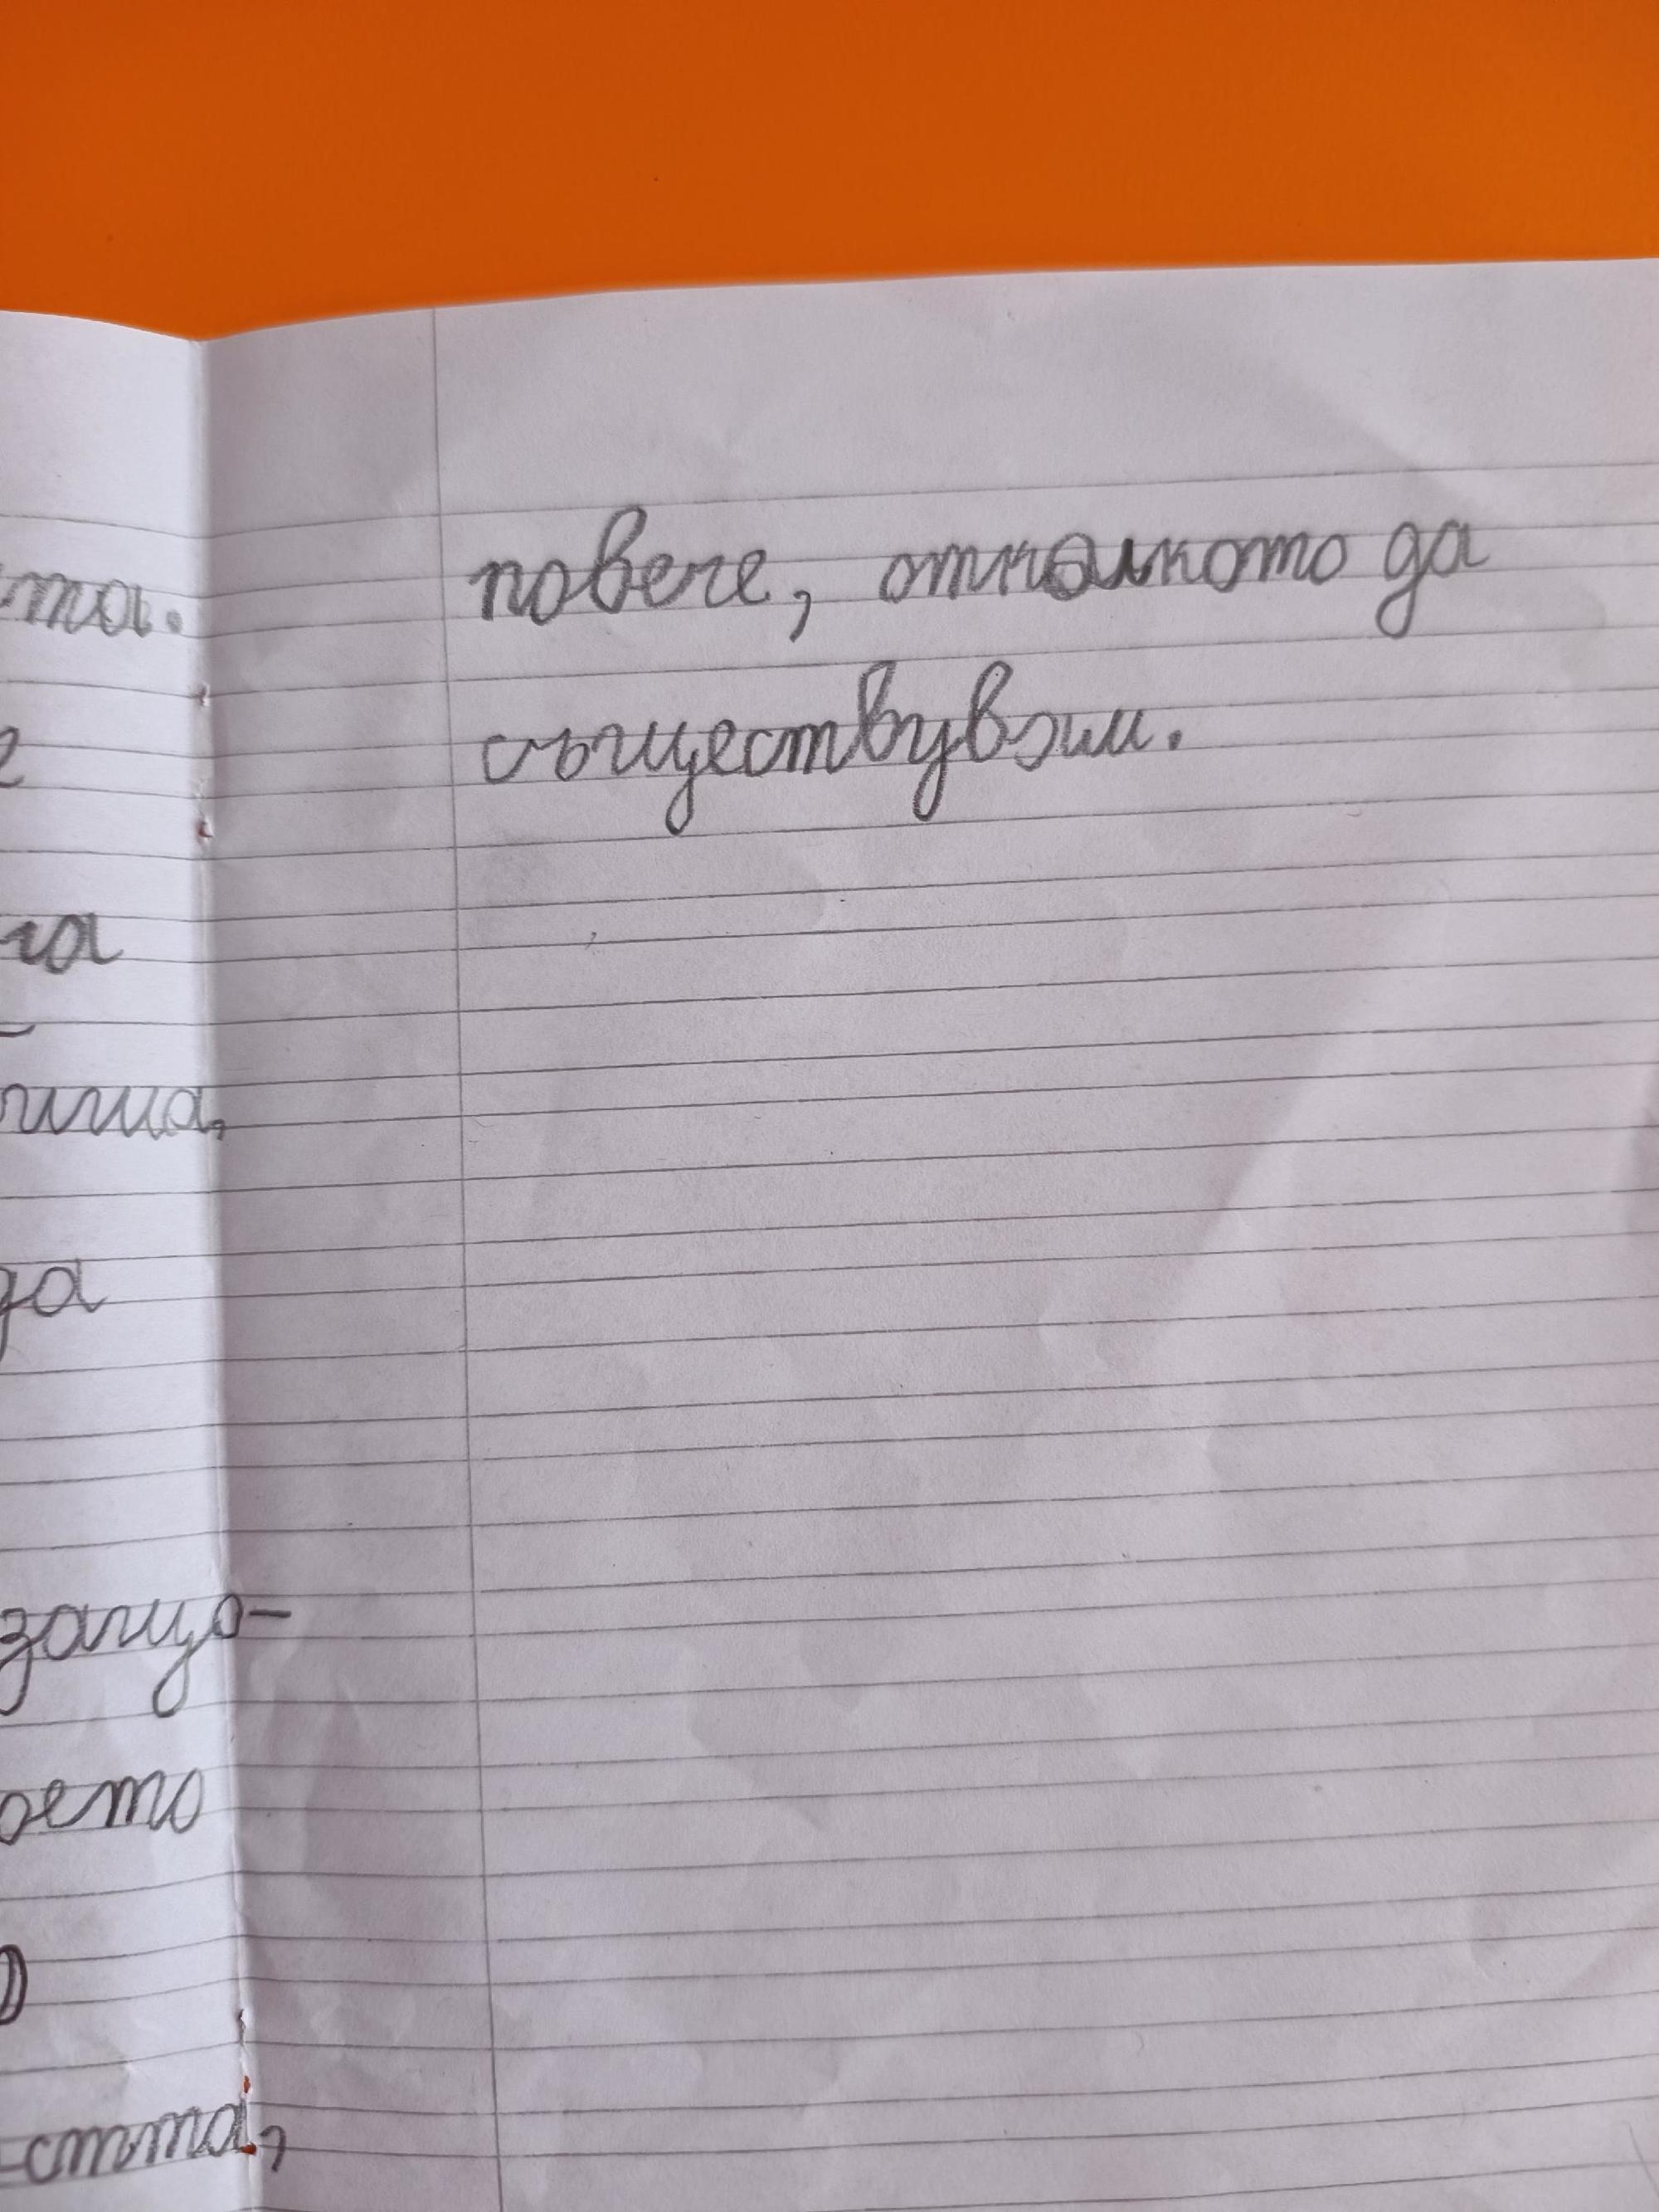 та.
да
защо-
оето
-стта,
повече, отколкото да
съществувам.